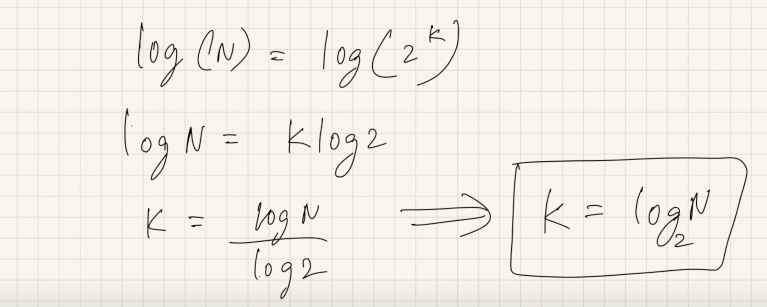 log(N) = log(2^K)
log N = K log 2
K = log N / log 2 ⟹ K = log₂ N